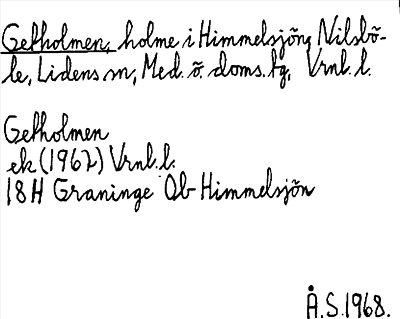 Getholmen, holme i Himmelsjön, Nilsbö-
le, Lidens sn, Med. ö. doms. tg, Vrnl. l.
Getholmen
ek (1967) Vrnl. l.
18H Graninge Ob Himmelsjön
Å.S. 1968.